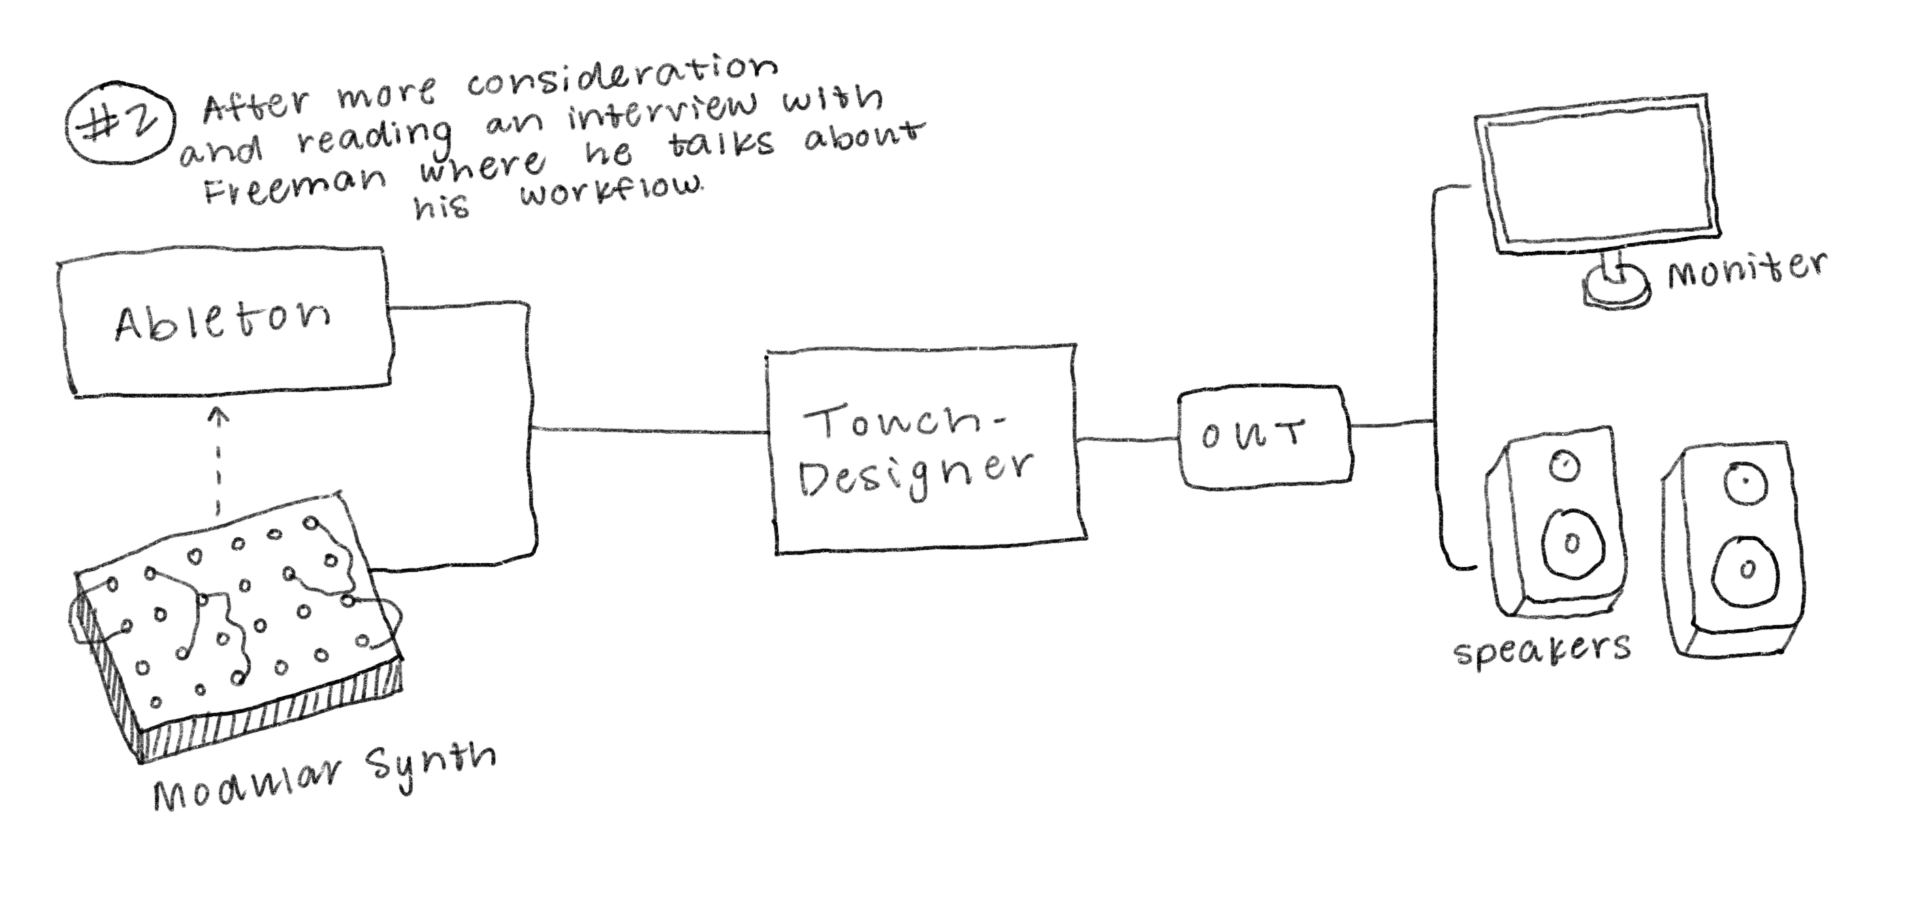 #2 After more consideration
and reading an interview with
Freeman where he talks about
his workflow.
Ableton
Touch-
Designer
OUT
Moniter
speakers
Modular Synth